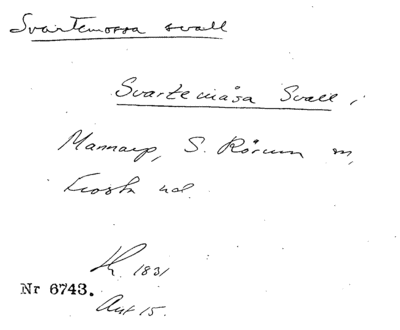 Svartemossa svall
Svartemåsa Svall i
Mannarp, S. Rörum sn,
Frosta hd.
Lr. 1831
Nr 6743.
Akt 15.